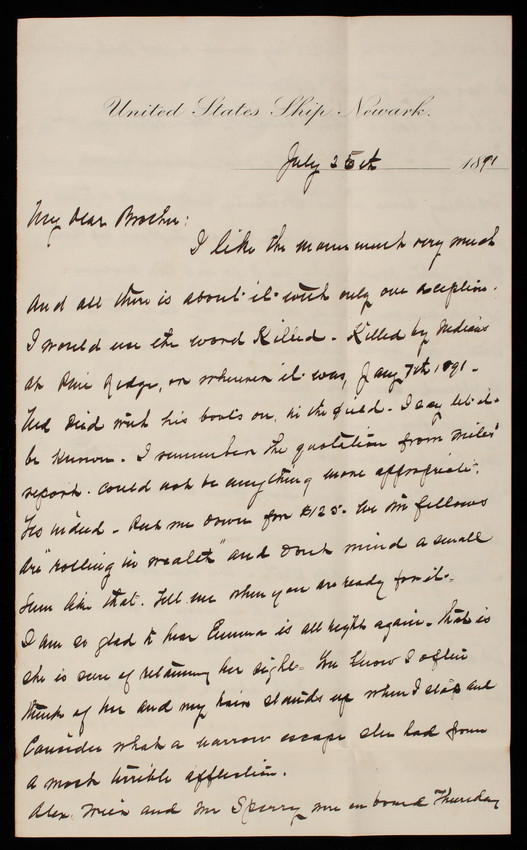 United States Ship Newark.
July 25th 1891
My Dear Brother:
I like the monument very much
And all there is about it with only one exception.
I would use the word Killed. Killed by Indians
at Pine Ridge, or wherever it was, Jany 7th 1891.
Ned Died with his boots on, in the field. I say let it
be known. I remember the quotation from Miles'
report. Could not be anything more appropriate.
indeed. Put me down for $125. We fellows
are "rolling in wealth" and don't mind a small
sum like that. Tell me when you are ready for it.
I am so glad to hear Emma is all right again. That is
she is sure of retaining her sight. You know I often
think of her and my hair stands up when I stop and
Consider what a narrow escape she had from
a most terrible affliction.
Alex, and Mr Sperry were on board Thursday